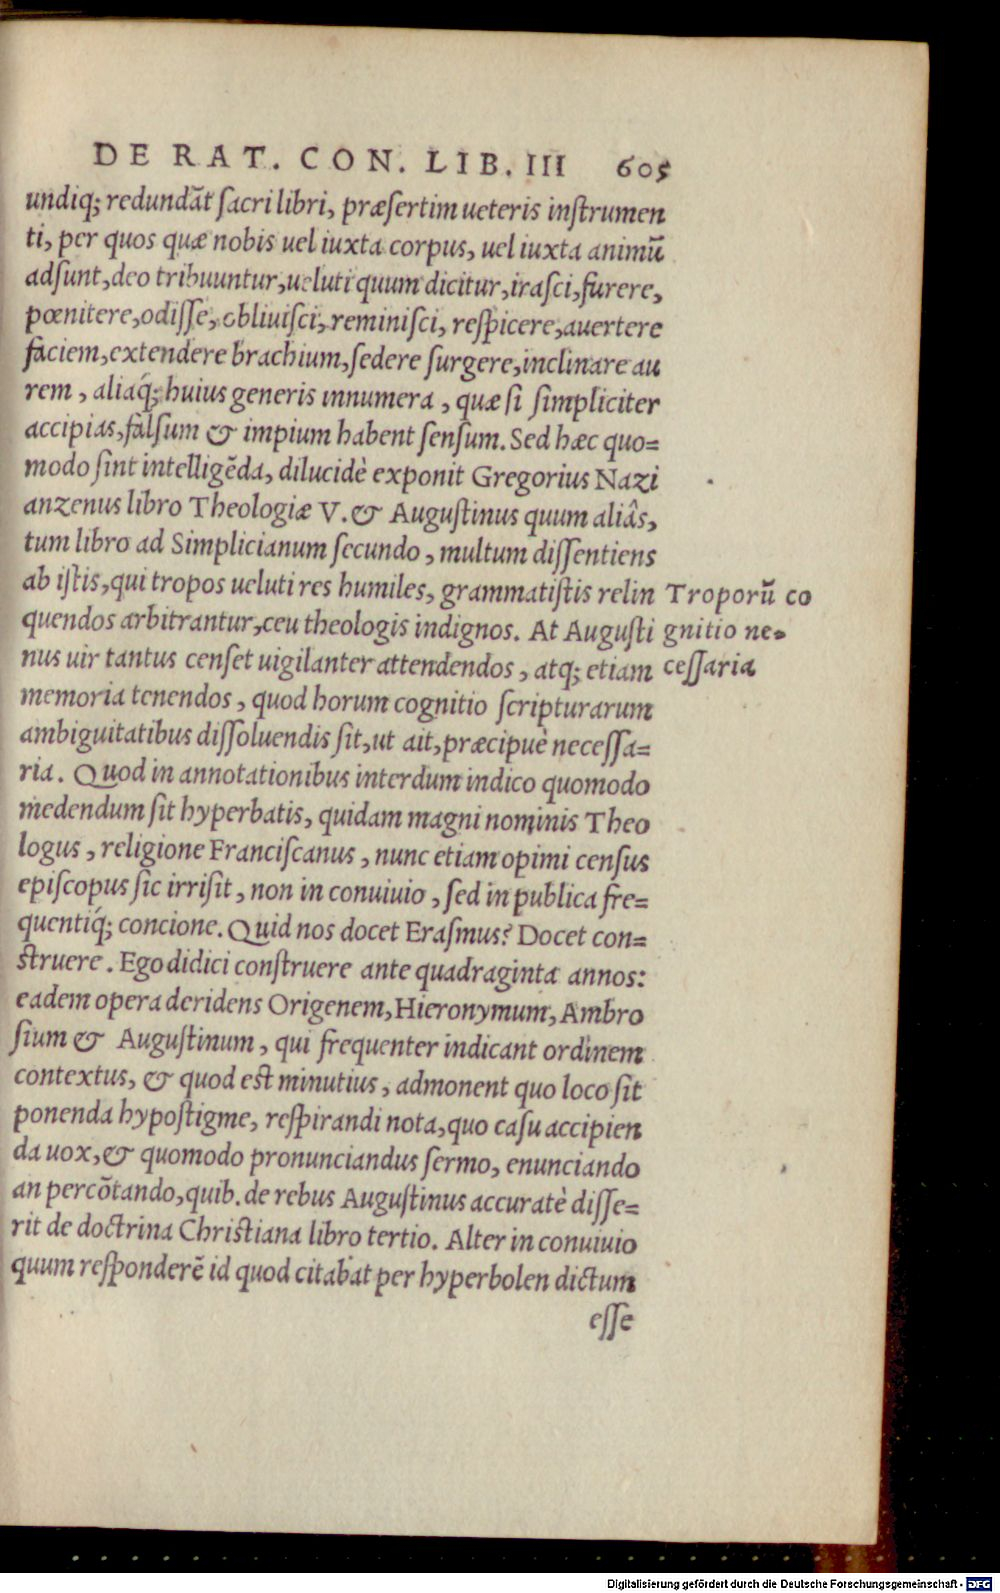 DE RAT. CON. LIB. III 605
undiq; redundãt sacri libri, præsertim ueteris instrumen
ti, per quos quæ nobis uel iuxta corpus, uel iuxta animũ
adsunt, deo tribuuntur, ueluti quum dicitur, irasci, furere,
pœnitere, odisse, obliuisci, reminisci, respicere, auertere
faciem, extendere brachium, sedere surgere, inclinare au
rem, aliaq́; huius generis innumera, quæ si simpliciter
accipias, falsum & impium habent sensum. Sed hæc quo=
modo sint intelligẽda, dilucidè exponit Gregorius Nazi
anzenus libro Theologiæ V. & Augustinus quum aliâs,
tum libro ad Simplicianum secundo, multum dissentiens
ab istis, qui tropos ueluti res humiles, grammatistis relin
quendos arbitrantur, ceu theologis indignos. At Augusti
nus uir tantus censet uigilanter attendendos, atq; etiam
memoria tenendos, quod horum cognitio scripturarum
ambiguitatibus dissoluendis sit, ut ait, præcipuè necessa=
ria. Quod in annotationibus interdum indico quomodo
medendum sit hyperbatis, quidam magni nominis Theo
logus, religione Franciscanus, nunc etiam opimi census
episcopus sic irrisit, non in conuiuio, sed in publica fre=
quentiq́; concione. Quid nos docet Erasmus? Docet con=
struere. Ego didici construere ante quadraginta annos:
eadem opera deridens Origenem, Hieronymum, Ambro
sium & Augustinum, qui frequenter indicant ordinem
contextus, & quod est minutius, admonent quo loco sit
ponenda hypostigme, respirandi nota, quo casu accipien
da uox, & quomodo pronunciandus sermo, enunciando
an percõtando, quib. de rebus Augustinus accuratè disse=
rit de doctrina Christiana libro tertio. Alter in conuiuio
quum responderẽ id quod citabat per hyperbolen dictum
esse
Troporũ co
gnitio ne=
cessaria
Digitalisierung gefördert durch die Deutsche Forschungsgemeinschaft - DFG